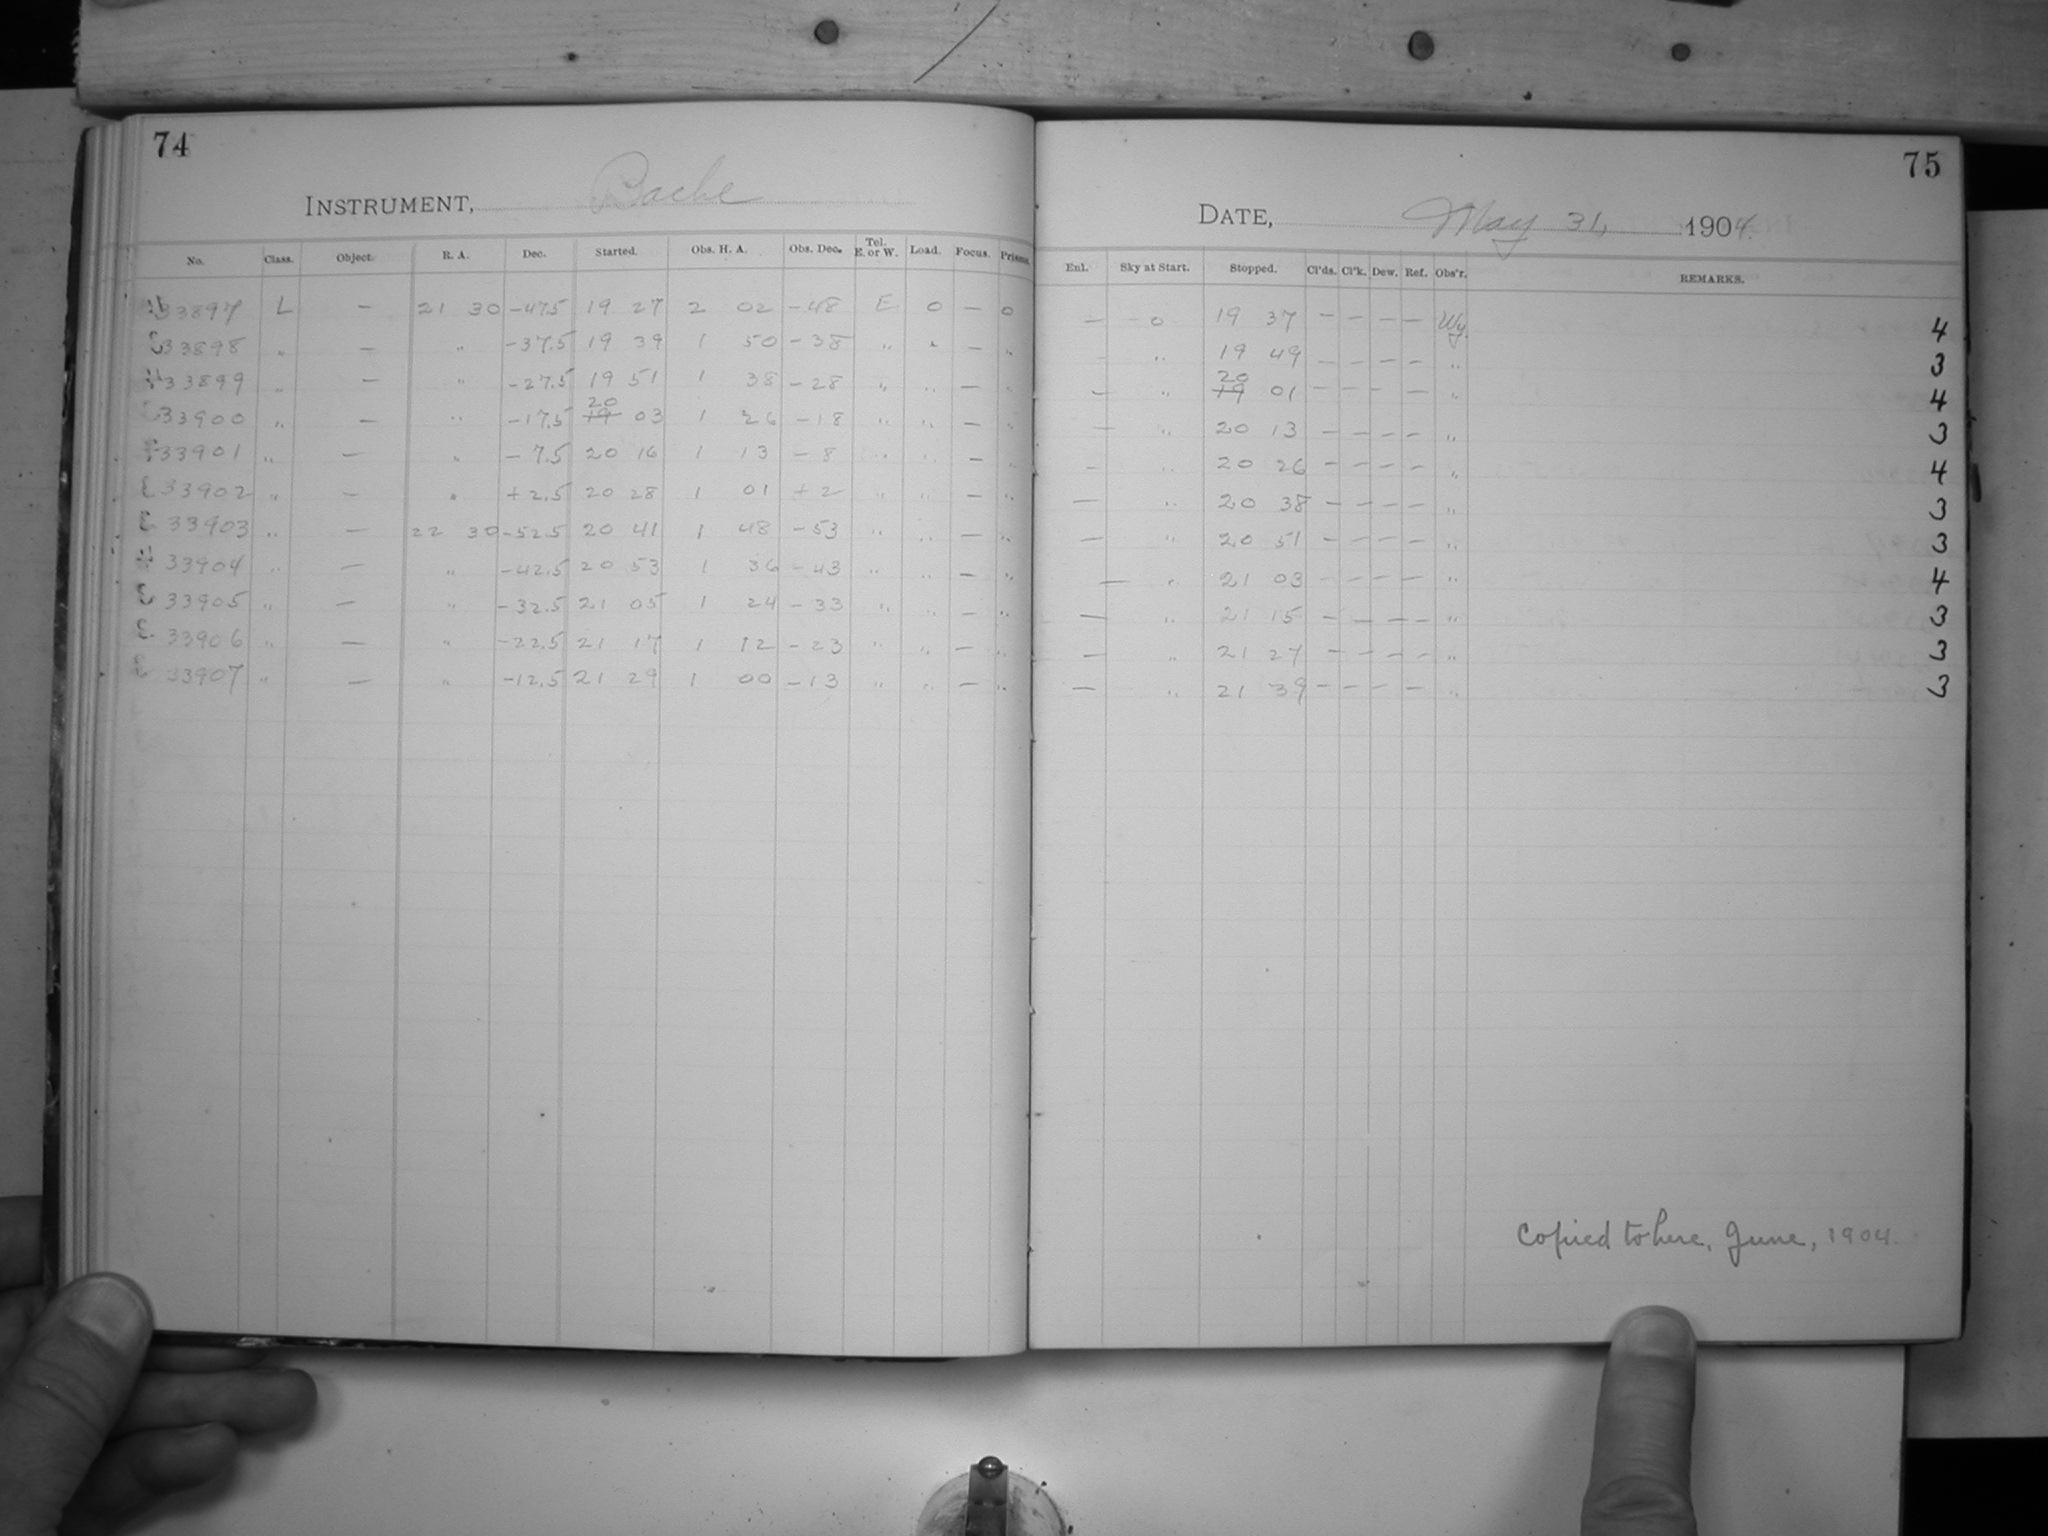 74
INSTRUMENT, Bache
No. Class. Object. R. A. Dec. Started. Obs. H. A. Obs. Dec. Tel. E. or W. Load. Focus. Prisms.
33897 L — 21 30 -47.5 19 27 2 02 -48 E 0 — 0
33898 " — " -37.5 19 39 1 50 -38 " " — "
33899 " — " -27.5 19 51 1 38 -28 " " — "
33900 " — " -17.5 20 19 03 1 26 -18 " " — "
33901 " — " -7.5 20 16 1 13 -8 " " — "
33902 " — " +2.5 20 28 1 01 +2 " " — "
33903 " — 22 30 -52.5 20 41 1 48 -53 " " — "
33904 " — " -42.5 20 53 1 36 -43 " " — "
33905 " — " -32.5 21 05 1 24 -33 " " — "
33906 " — " -22.5 21 17 1 12 -23 " " — "
33907 " — " -12.5 21 29 1 00 -13 " " — "
75
DATE, May 31, 1904.
Enl. Sky at Start. Stopped. Cl'ds. Cl'k. Dew. Ref. Obs'r. REMARKS.
— 0 19 37 — — — — Wy. 4
— " 19 49 — — — — " 3
— " 20 19 01 — — — — " 4
— " 20 13 — — — — " 3
— " 20 26 — — — — " 4
— " 20 38 — — — — " 3
— " 20 51 — — — — " 3
— " 21 03 — — — — " 4
— " 21 15 — — — — " 3
— " 21 27 — — — — " 3
— " 21 39 — — — — " 3
Copied to here, June, 1904.